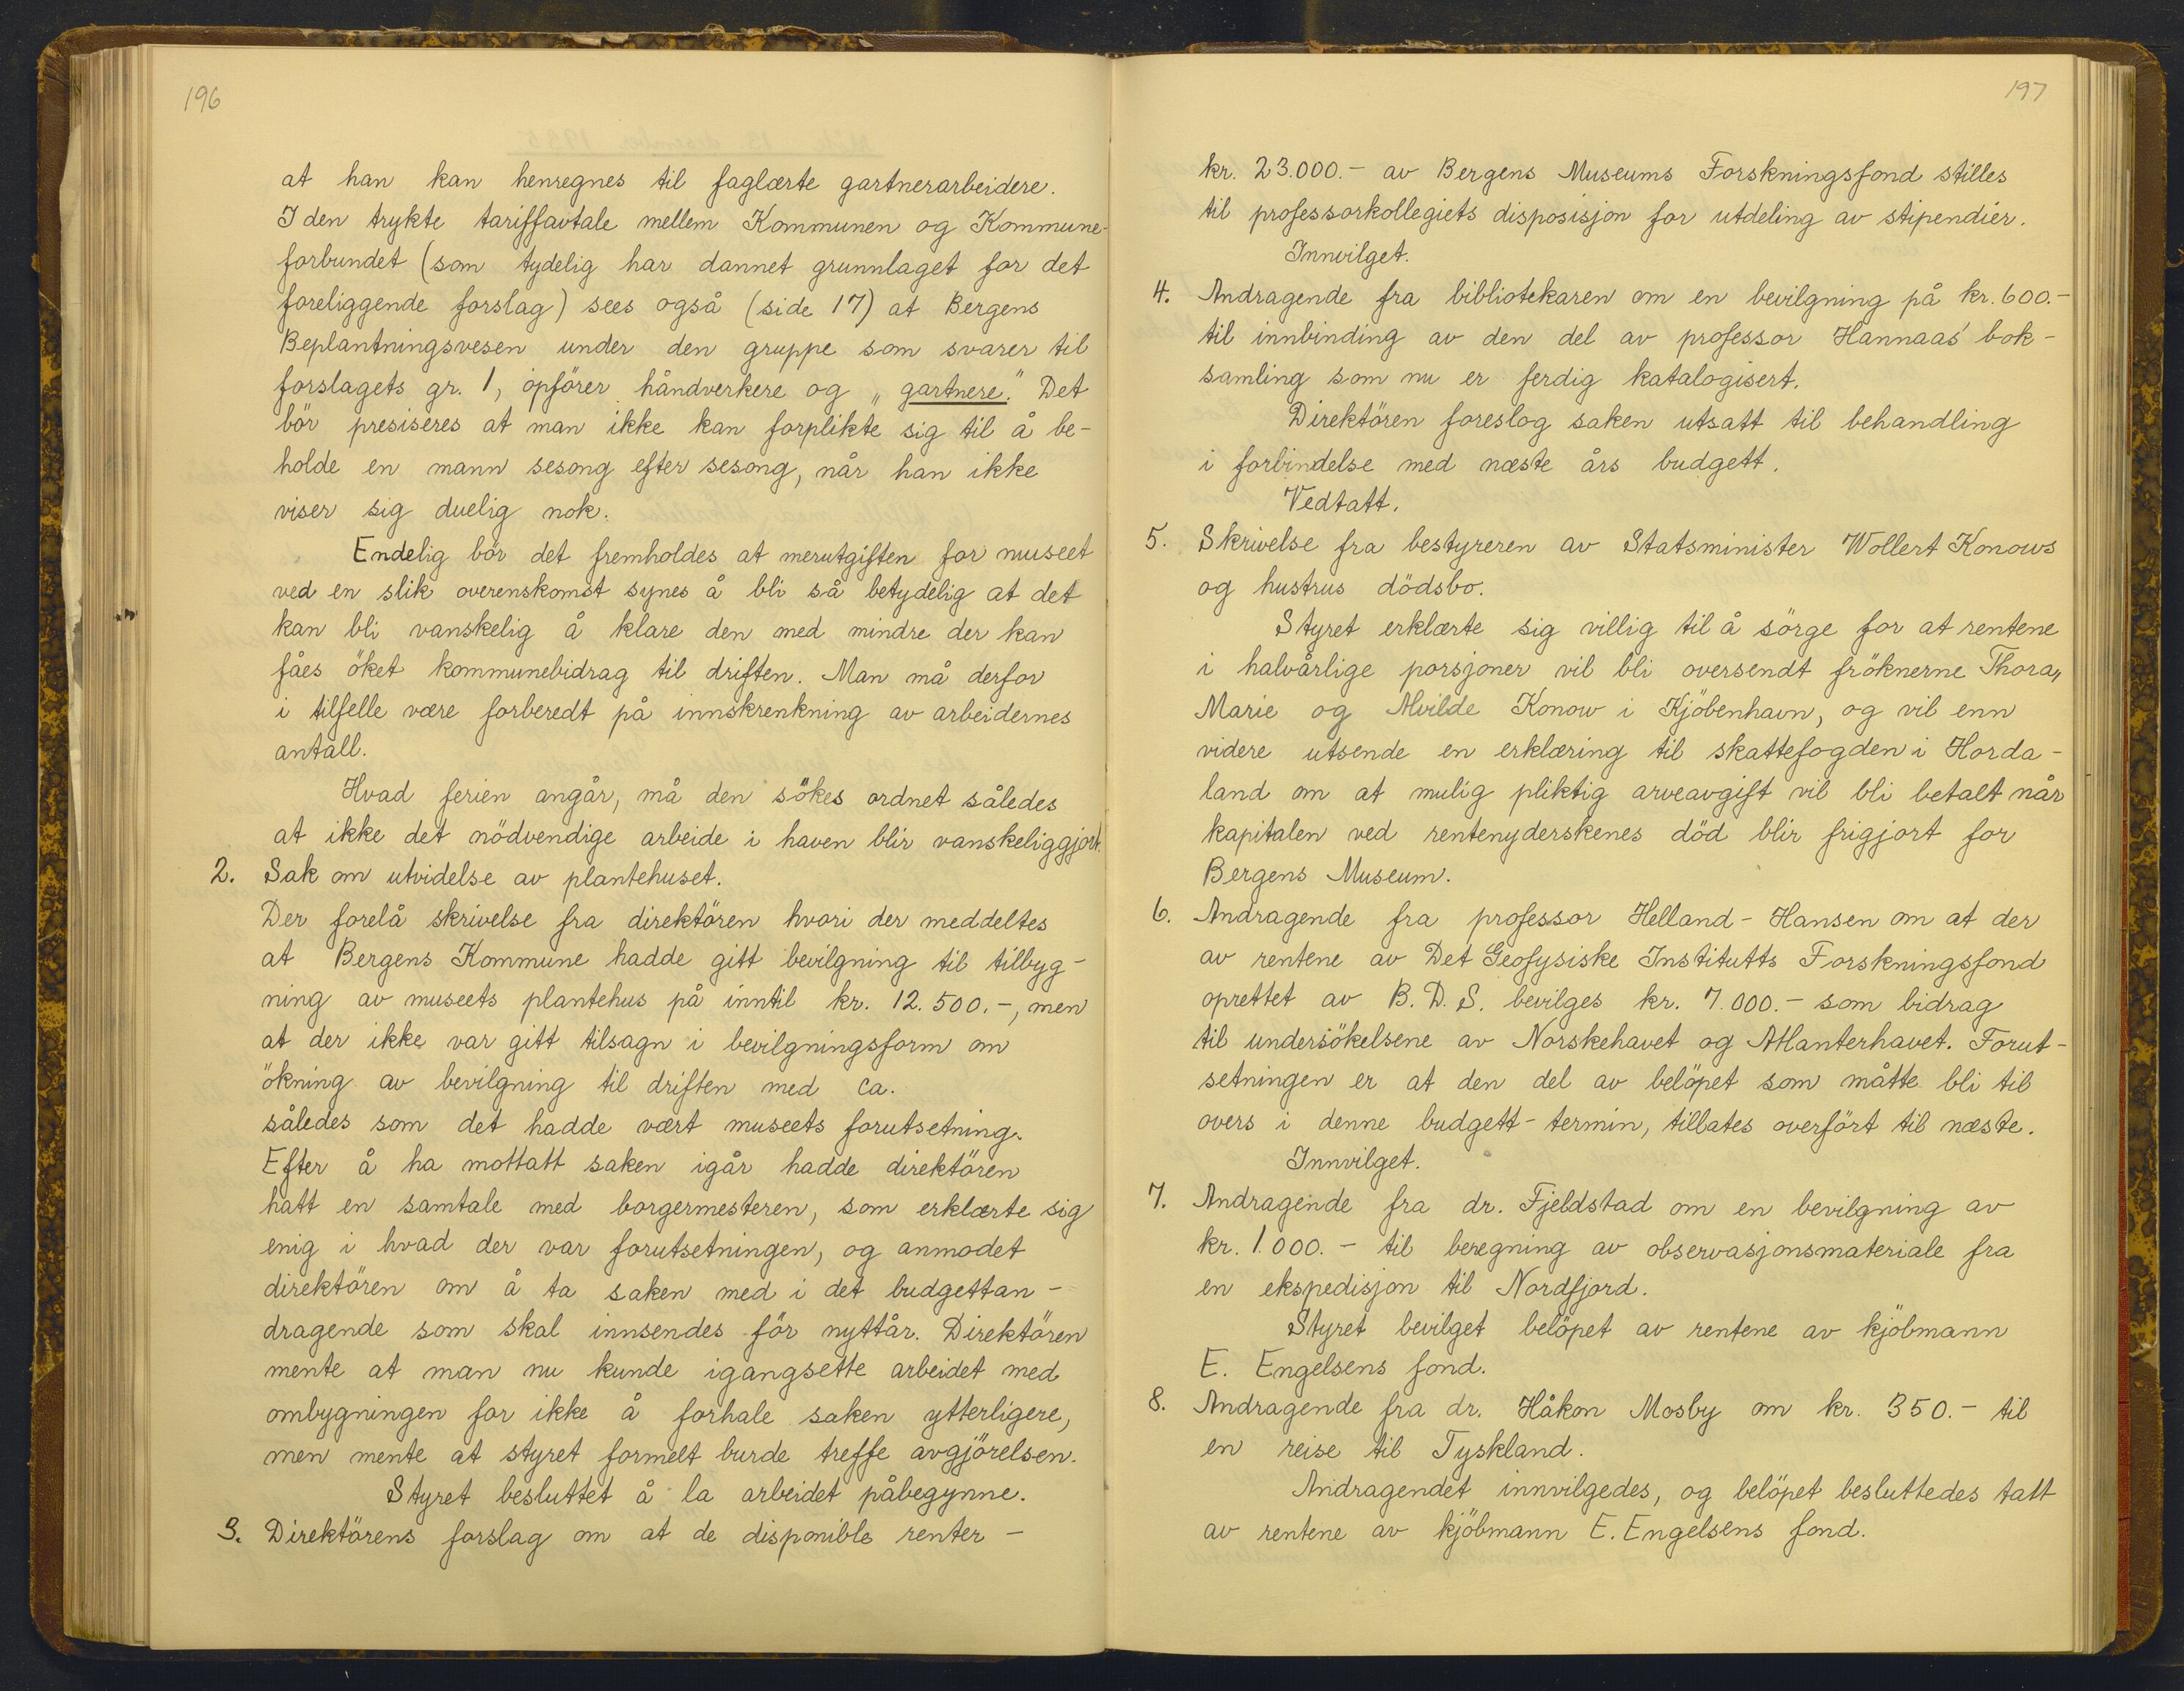 196
at han kan henregnes til faglærte gartnerarbeidere.
I den trykte tariffavtale mellem Kommunen og Kommune-
forbundet (som tydelig har dannet grunnlaget for det
foreliggende forslag) sees også (side 17) at Bergens
Beplantningsvesen under den gruppe som svarer til
forslagets gr. 1, opförer håndverkere og „gartnere." Det
bör presiseres at man ikke kan forplikte sig til å be-
holde en mann sesong efter sesong, når han ikke
viser sig duelig nok.
Endelig bör det fremholdes at merutgiften for museet
ved en slik overenskomst synes å bli så betydelig at det
kan bli vanskelig å klare den med mindre der kan
fåes öket kommunebidrag til driften. Man må derfor
i tilfelle være forberedt på innskrenkning av arbeidernes
antall.
Hvad ferien angår, må den sökes ordnet således
at ikke det nödvendige arbeide i haven blir vanskeliggjort.
2. Sak om utvidelse av plantehuset.
Der forelå skrivelse fra direktören hvori der meddeltes
at Bergens Kommune hadde gitt bevilgning til tilbyg-
ning av museets plantehus på inntil kr. 12.500.-, men
at der ikke var gitt tilsagn i bevilgningsform om
ökning av bevilgning til driften med ca.
således som det hadde vært museets forutsetning.
Efter å ha mottatt saken igår hadde direktören
hatt en samtale med borgermesteren, som erklærte sig
enig i hvad der var forutsetningen, og anmodet
direktören om å ta saken med i det budgettan-
dragende som skal innsendes för nyttår. Direktören
mente at man nu kunde igangsette arbeidet med
ombygningen for ikke å forhale saken ytterligere,
men mente at styret formelt burde treffe avgjörelsen.
Styret besluttet å la arbeidet påbegynne.
3. Direktörens forslag om at de disponible renter -
197
kr. 23.000.- av Bergens Museums Forskningsfond stilles
til professorkollegiets disposisjon for utdeling av stipendier.
Innvilget.
4. Andragende fra bibliotekaren om en bevilgning på kr. 600.-
til innbinding av den del av professor Hannaas' bok-
samling som nu er ferdig katalogisert.
Direktören foreslog saken utsatt til behandling
i forbindelse med næste års budgett.
Vedtatt.
5. Skrivelse fra bestyreren av Statsminister Wollert Konows
og hustrus dödsbo.
Styret erklærte sig villig til å sörge for at rentene
i halvårlige porsjoner vil bli oversendt fröknerne Thora,
Marie og Alvilde Konow i Kjöbenhavn, og vil enn
videre utsende en erklæring til skattefogden i Horda-
land om at mulig pliktig arveavgift vil bli betalt når
kapitalen ved rentenyderskenes död blir frigjort for
Bergens Museum.
6. Andragende fra professor Helland-Hansen om at der
av rentene av Det Geofysiske Institutts Forskningsfond
oprettet av B.D.S. bevilges kr. 7.000.- som bidrag
til undersökelsene av Norskehavet og Atlanterhavet. Forut-
setningen er at den del av belöpet som måtte bli til
overs i denne budgett-termin, tillates overfört til næste.
Innvilget.
7. Andragende fra dr. Fjeldstad om en bevilgning av
kr. 1.000.- til beregning av observasjonsmateriale fra
en ekspedisjon til Nordfjord.
Styret bevilget belöpet av rentene av kjöbmann
E. Engelsens fond.
8. Andragende fra dr. Håkon Mosby om kr. 350.- til
en reise til Tyskland.
Andragendet innvilgedes, og belöpet besluttedes tatt
av rentene av kjöbmann E. Engelsens fond.